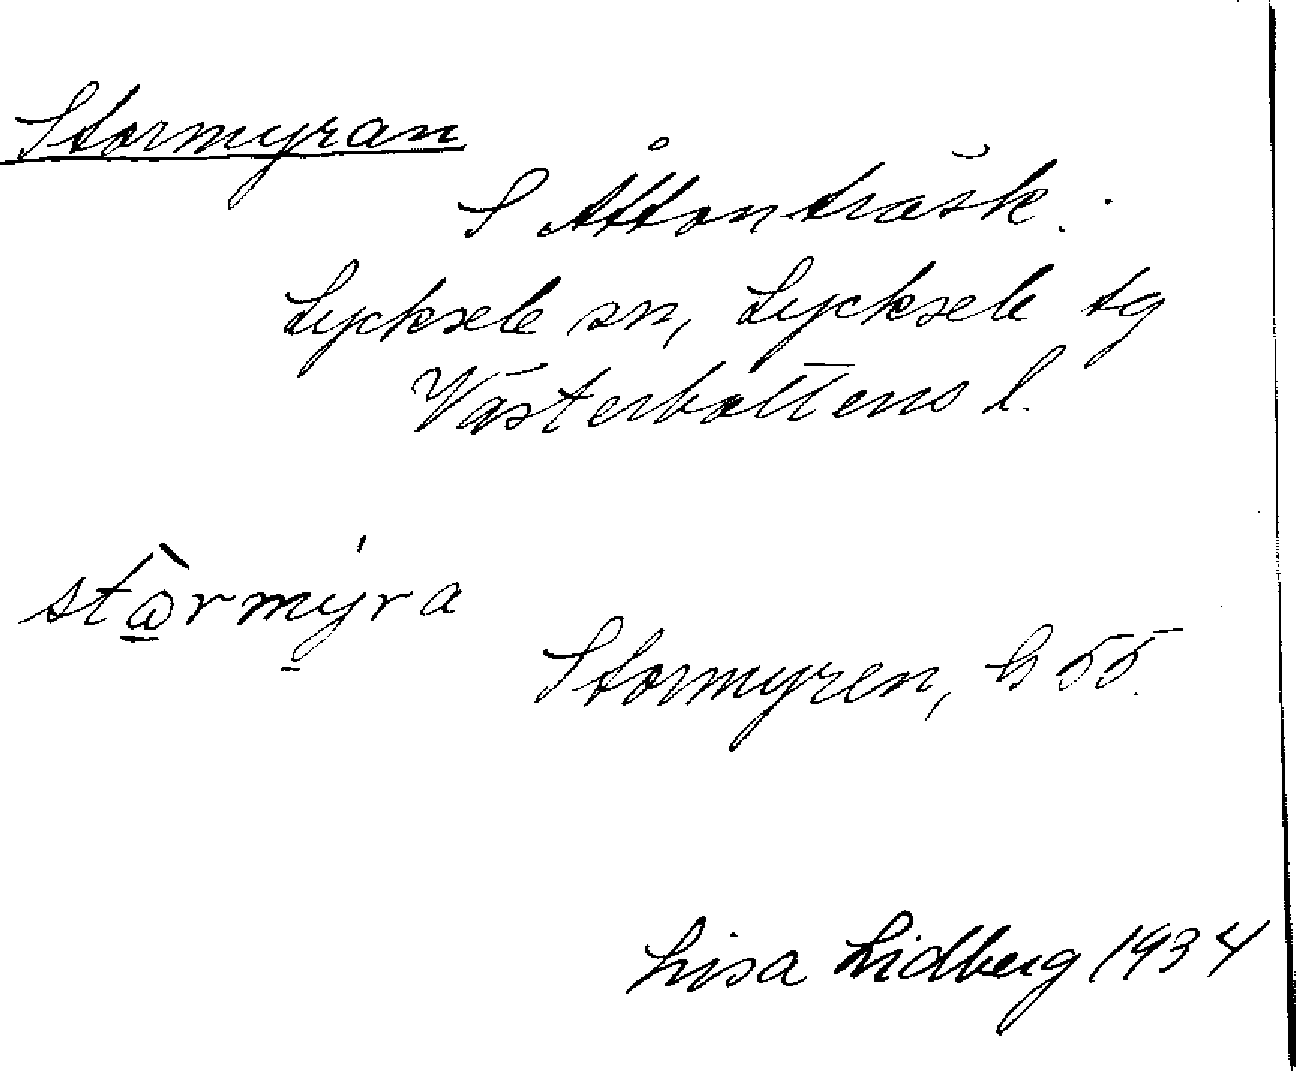 Stormyran
S Åttonträsk.
Lycksele sn, Lycksele tg
Västerbottens l.
stòrmýra
Stormyren, h 55.
Lisa Lidberg 1934